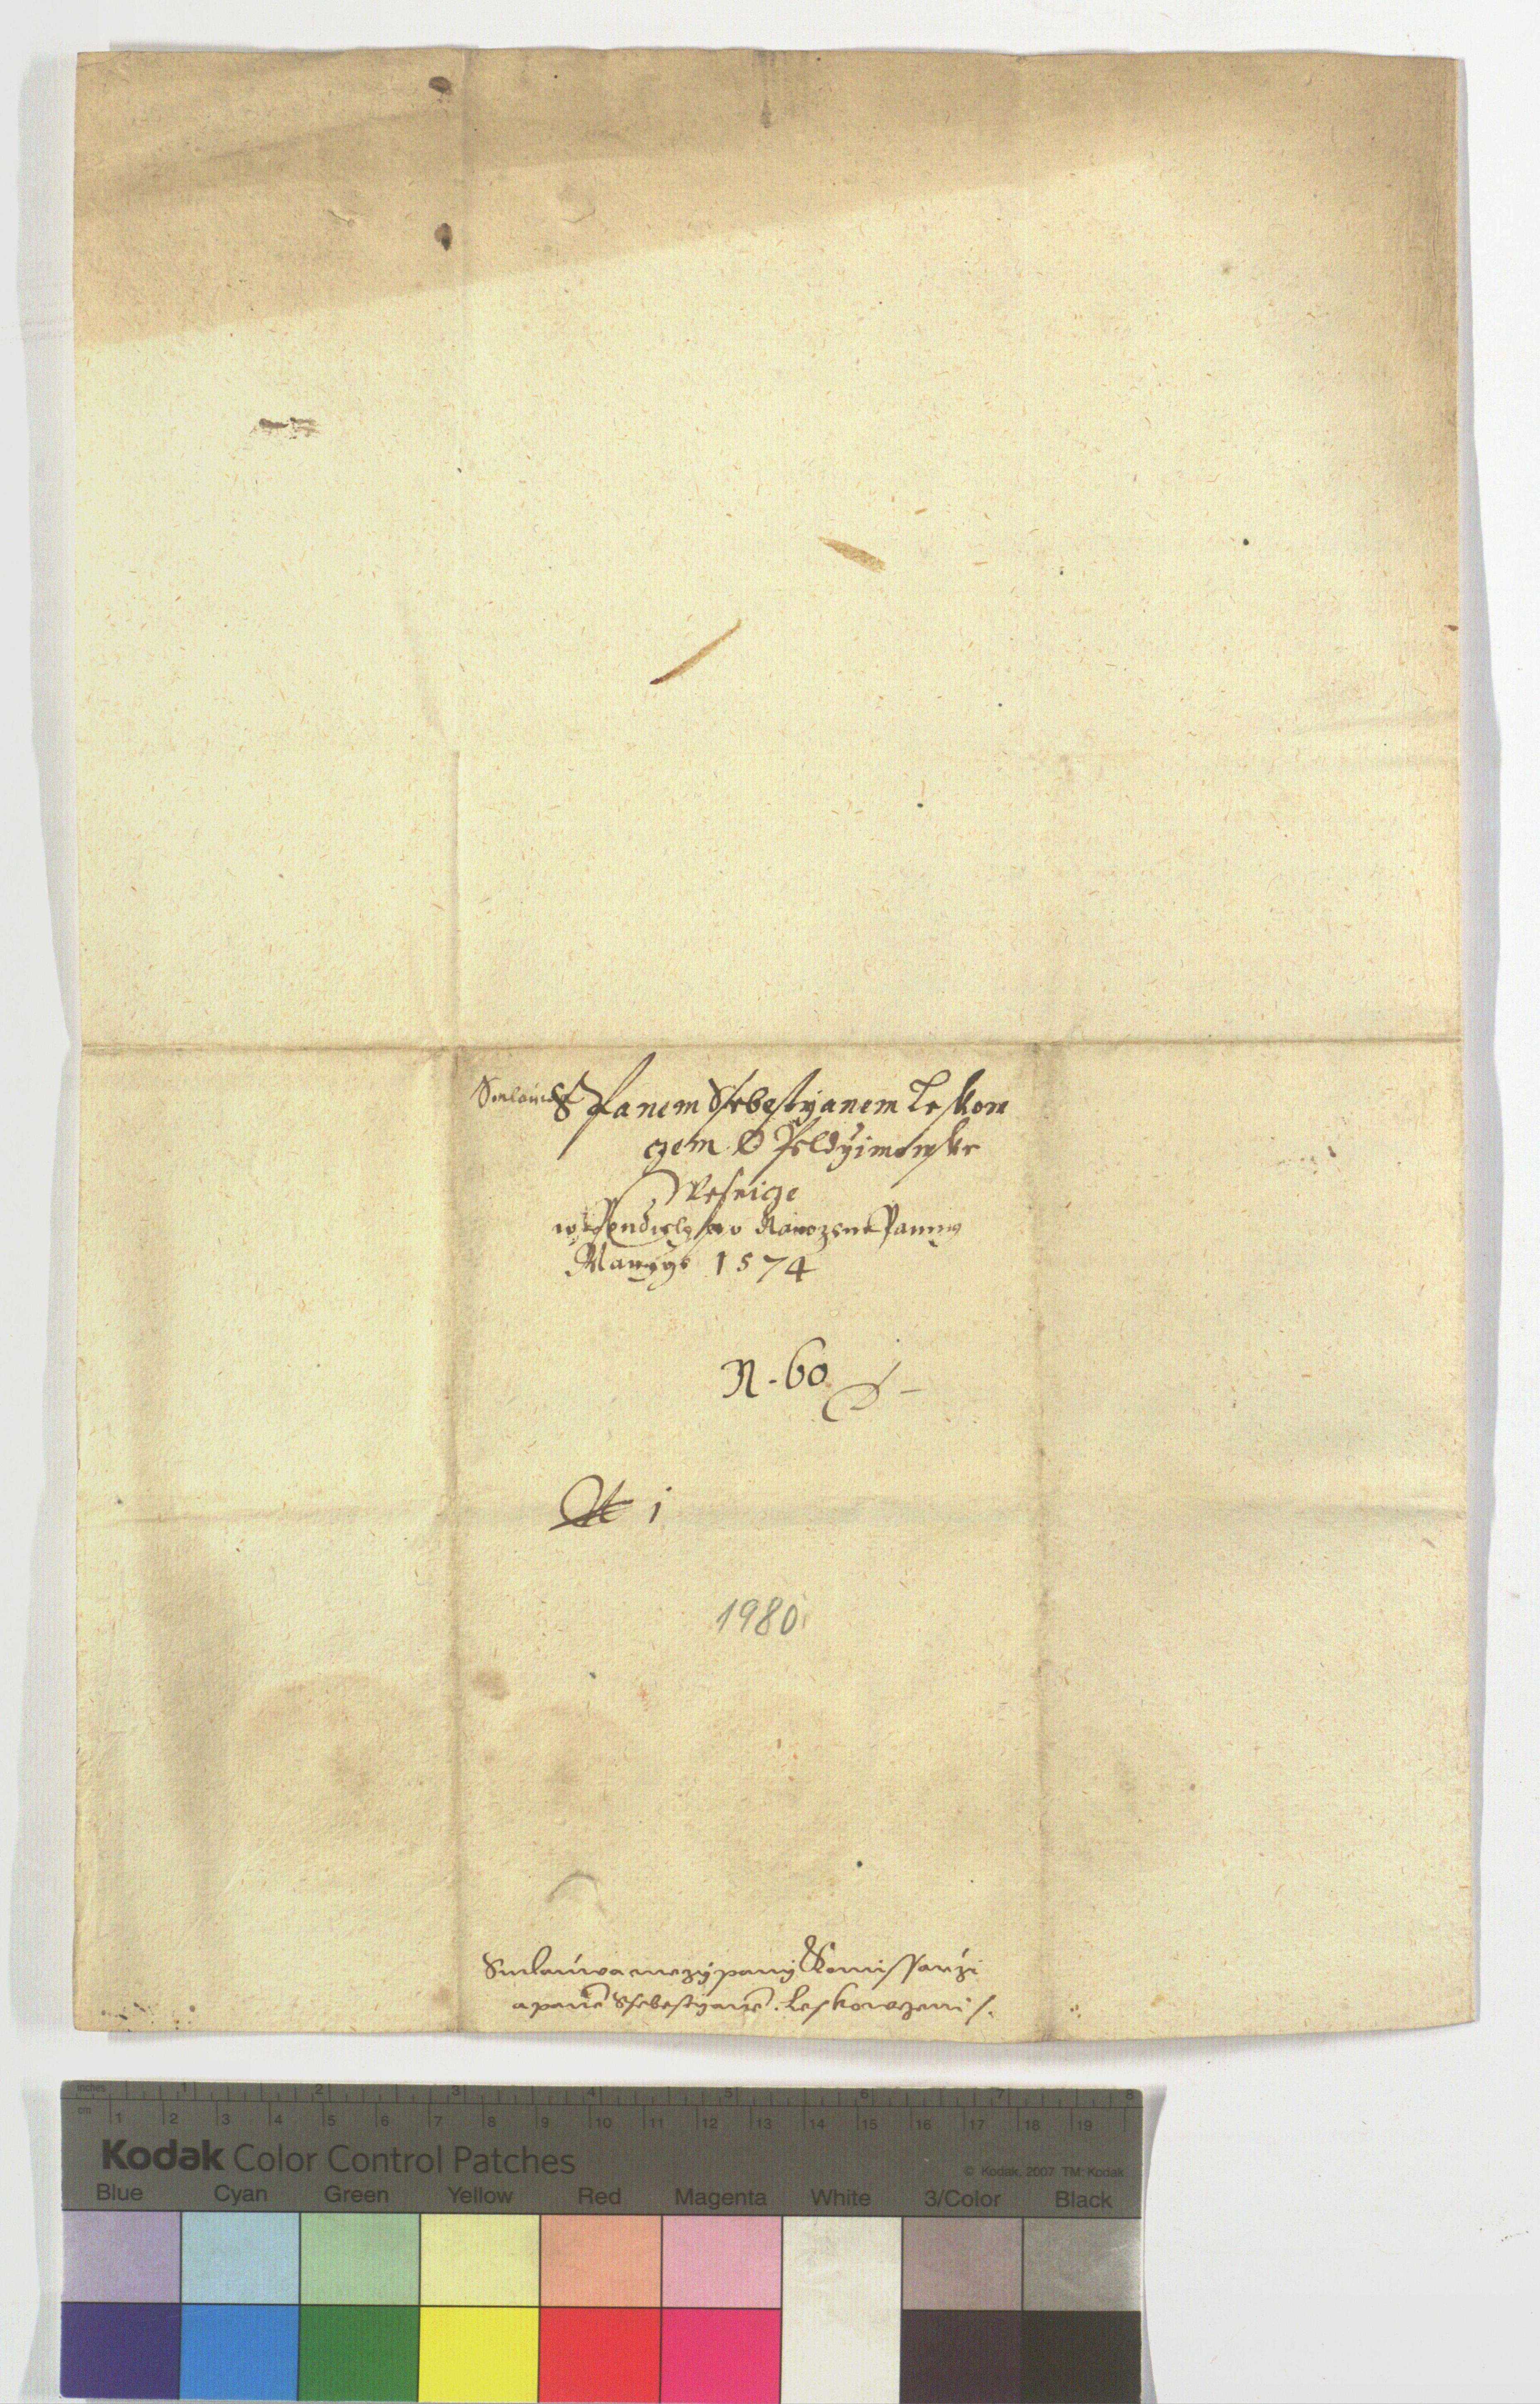 Smlouwa S Panem Ssebestyanem Leskow
czem O Pseldyimowske
Wesnicze
w Pondieli po Narozeni Panny
Marygi 1574
N. 60
1
1980
Smlauwa mezy pany Komissarzi
a panē Ssebestyanē Leskowczem
inches 1 2 3 4 5 6 7 8
cm 1 2 3 4 5 6 7 8 9 10 11 12 13 14 15 16 17 18 19
Kodak Color Control Patches
© Kodak, 2007 TM: Kodak
Blue Cyan Green Yellow Red Magenta White 3/Color Black